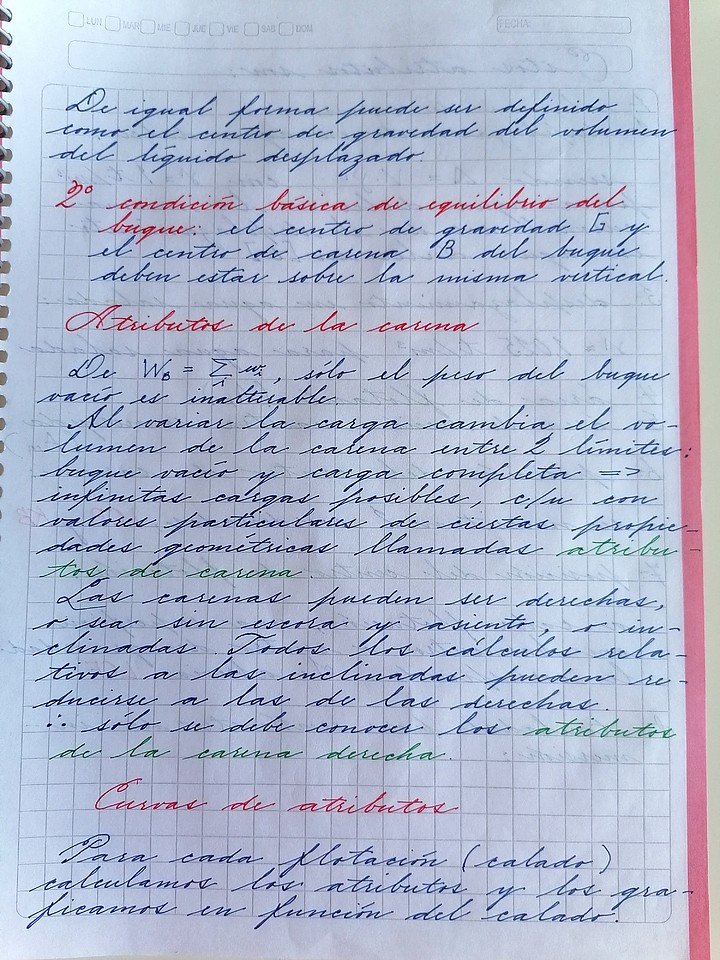 LUN MAR MIE JUE VIE SAB DOM FECHA:
De igual forma puede ser definido
como el centro de gravedad del volumen
del líquido desplazado.
2º condición básica de equilibrio del
buque: el centro de gravedad G y
el centro de carena B del buque
deben estar sobre la misma vertical.
Atributos de la carena
De W_B = Σ_i w_i, sólo el peso del buque
vacío es inalterable.
Al variar la carga cambia el vo-
lumen de la carena entre 2 límites:
buque vacío y carga completa =>
infinitas cargas posibles, c/u con
valores particulares de ciertas propie-
dades geométricas llamadas atribu-
tos de carena.
Las carenas pueden ser derechas,
o sea sin escora y asiento, o in-
clinadas. Todos los cálculos rela-
tivos a las inclinadas pueden re-
ducirse a las de las derechas.
∴ sólo se debe conocer los atributos
de la carena derecha.
Curvas de atributos
Para cada flotación (calado)
calculamos los atributos y los gra-
ficamos en función del calado.